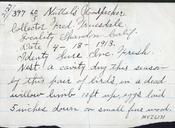 397 60 Nuttalls Woodpecker
Collector Fred Truesdale
Locality Shandon Calif.
Date 4-18-1913.
Identity Sure Inc. Fresh
Nest a cavity dug this season
by this pair of birds in a dead
willow limb 10 ft up, eggs laid
5 inches down on small fine wood.